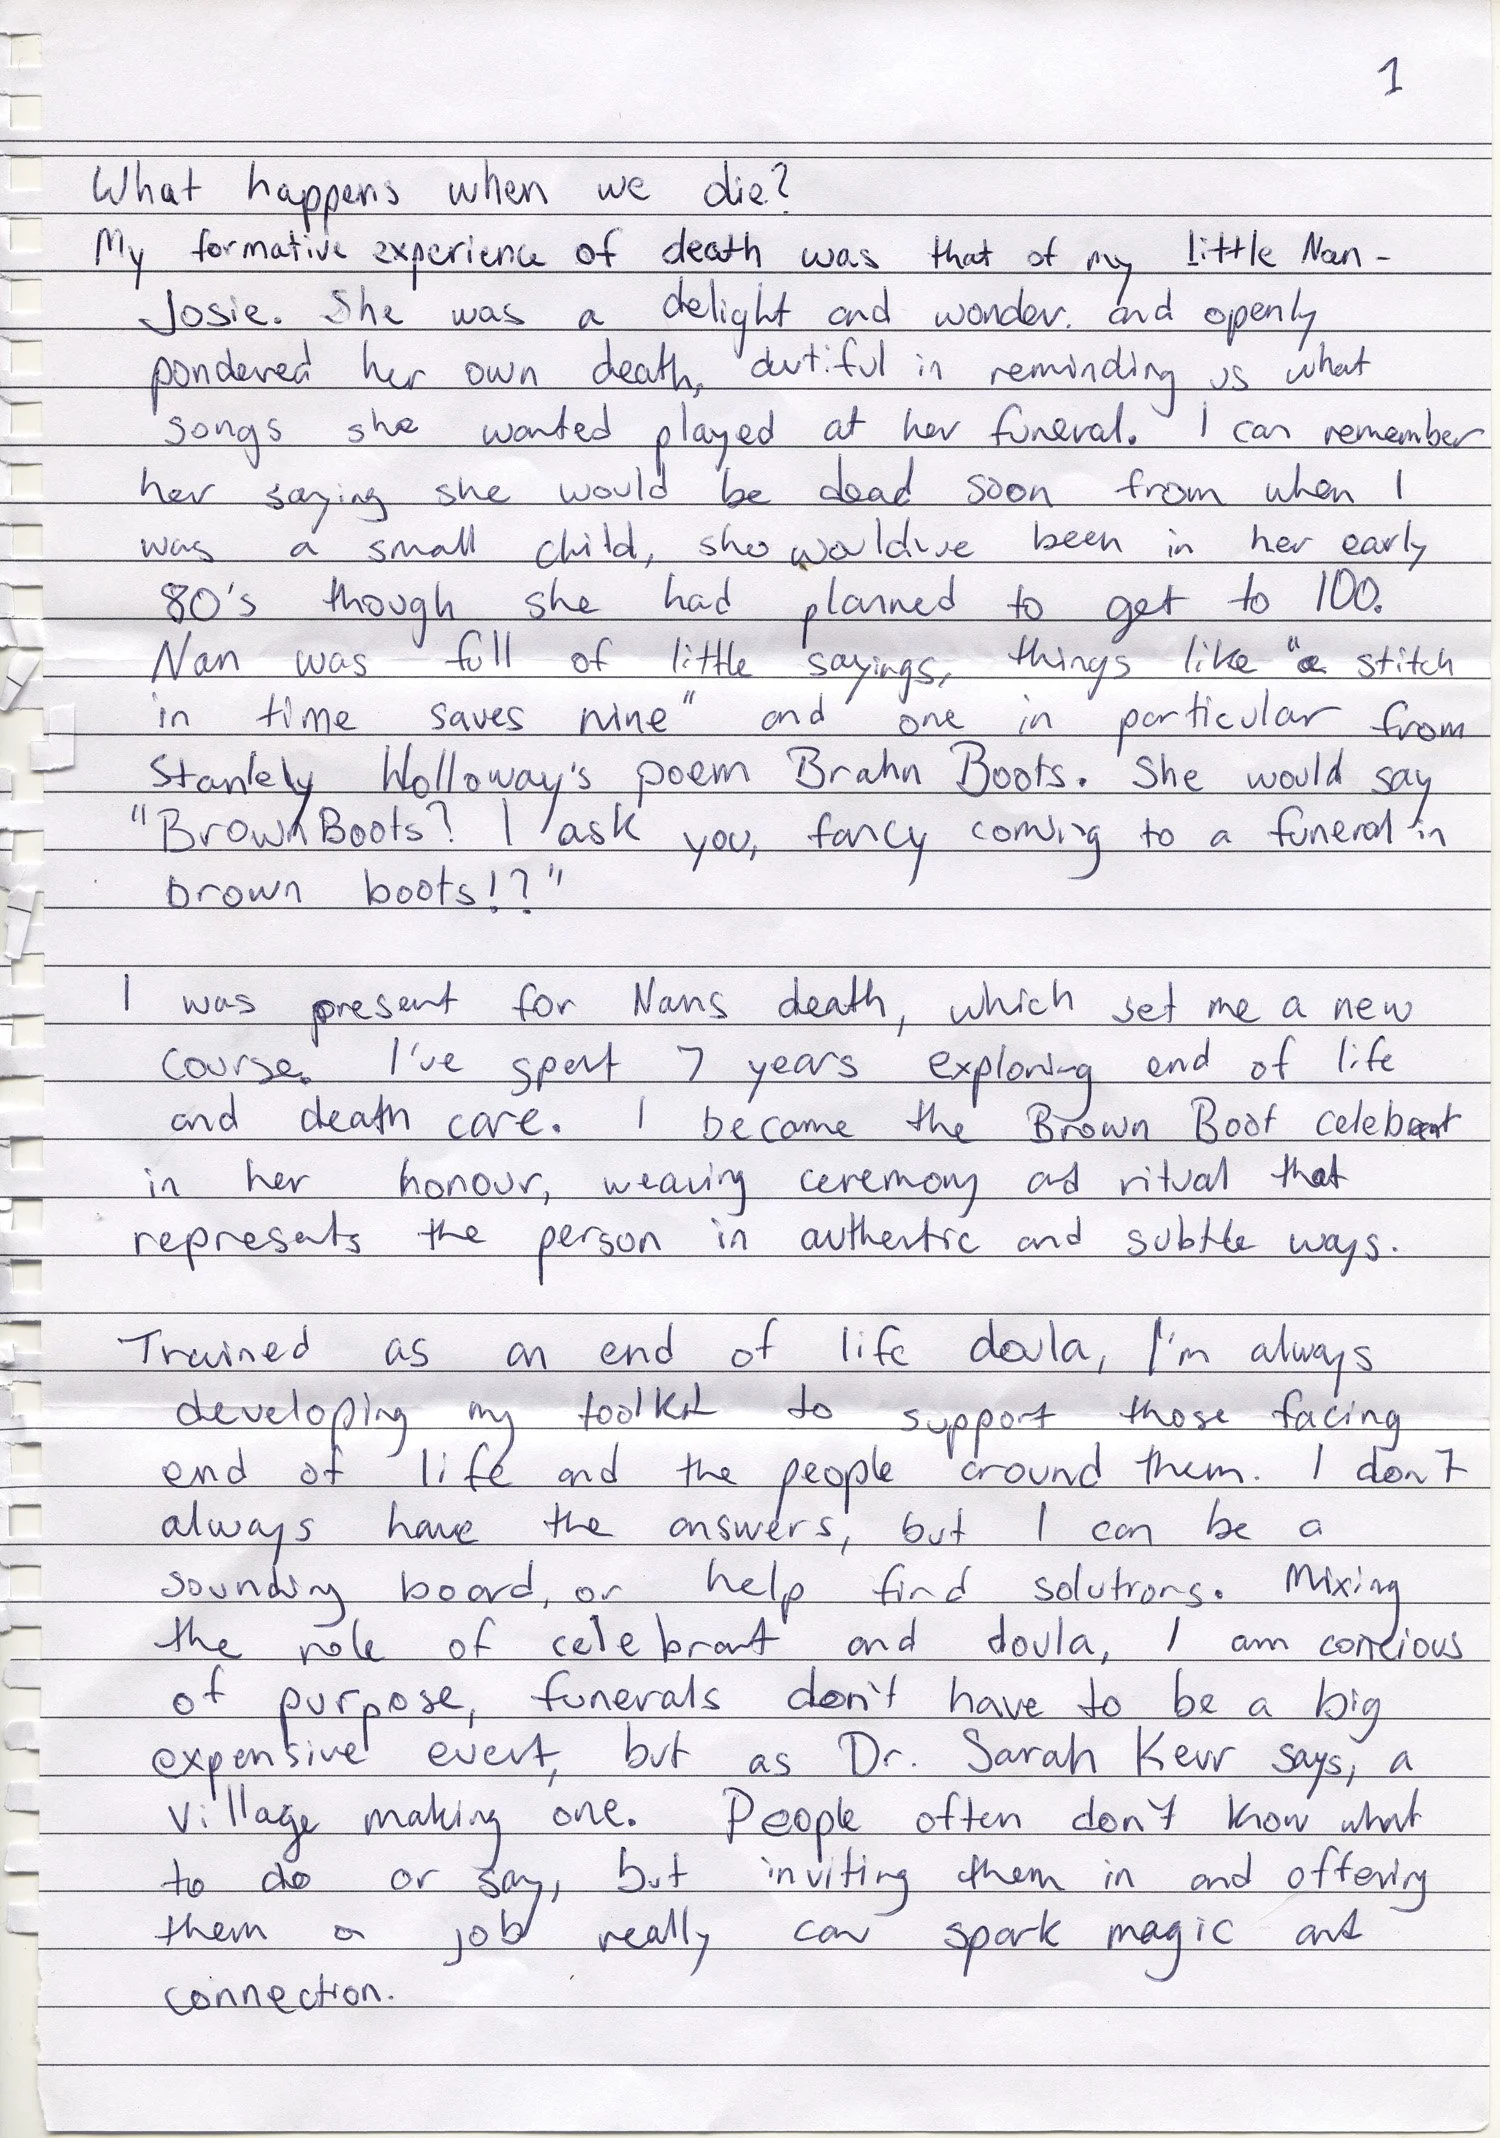 1
What happens when we die?
My formative experience of death was that of my little Nan -
Josie. She was a delight and wonder. and openly
pondered her own death, dutiful in reminding us what
songs she wanted played at her funeral. I can remember
her saying she would be dead soon from when I
was a small child, she wouldive been in her early
80's though she had planned to get to 100.
Nan was full of little sayings, things like "a stitch
in time saves nine" and one in particular from
Stanlely Holloway's poem Brahn Boots. She would say
"Brown Boots? I ask you, fancy coming to a funeral in
brown boots!?"
I was present for Nans death, which set me a new
course. I've spent 7 years exploring end of life
and death care. I became the Brown Boot celebrant
in her honour, weaving ceremony and ritual that
represents the person in authentic and subtle ways.
Trained as an end of life doula, I'm always
developing my toolkit to support those facing
end of life and the people around them. I don't
always have the answers, but I can be a
sounding board, or help find solutions. Mixing
the role of celebrant and doula, I am concious
of purpose, funerals don't have to be a big
expensive event, but as Dr. Sarah Kerr says, a
village making one. People often don't know what
to do or say, but inviting them in and offering
them a job really can spark magic and
connection.